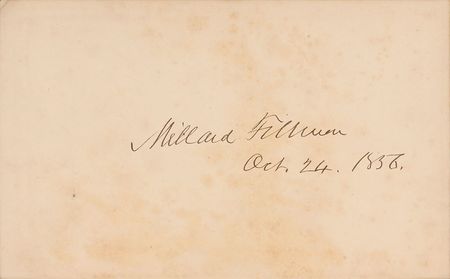 Millard Fillmore
Oct. 24. 1856.